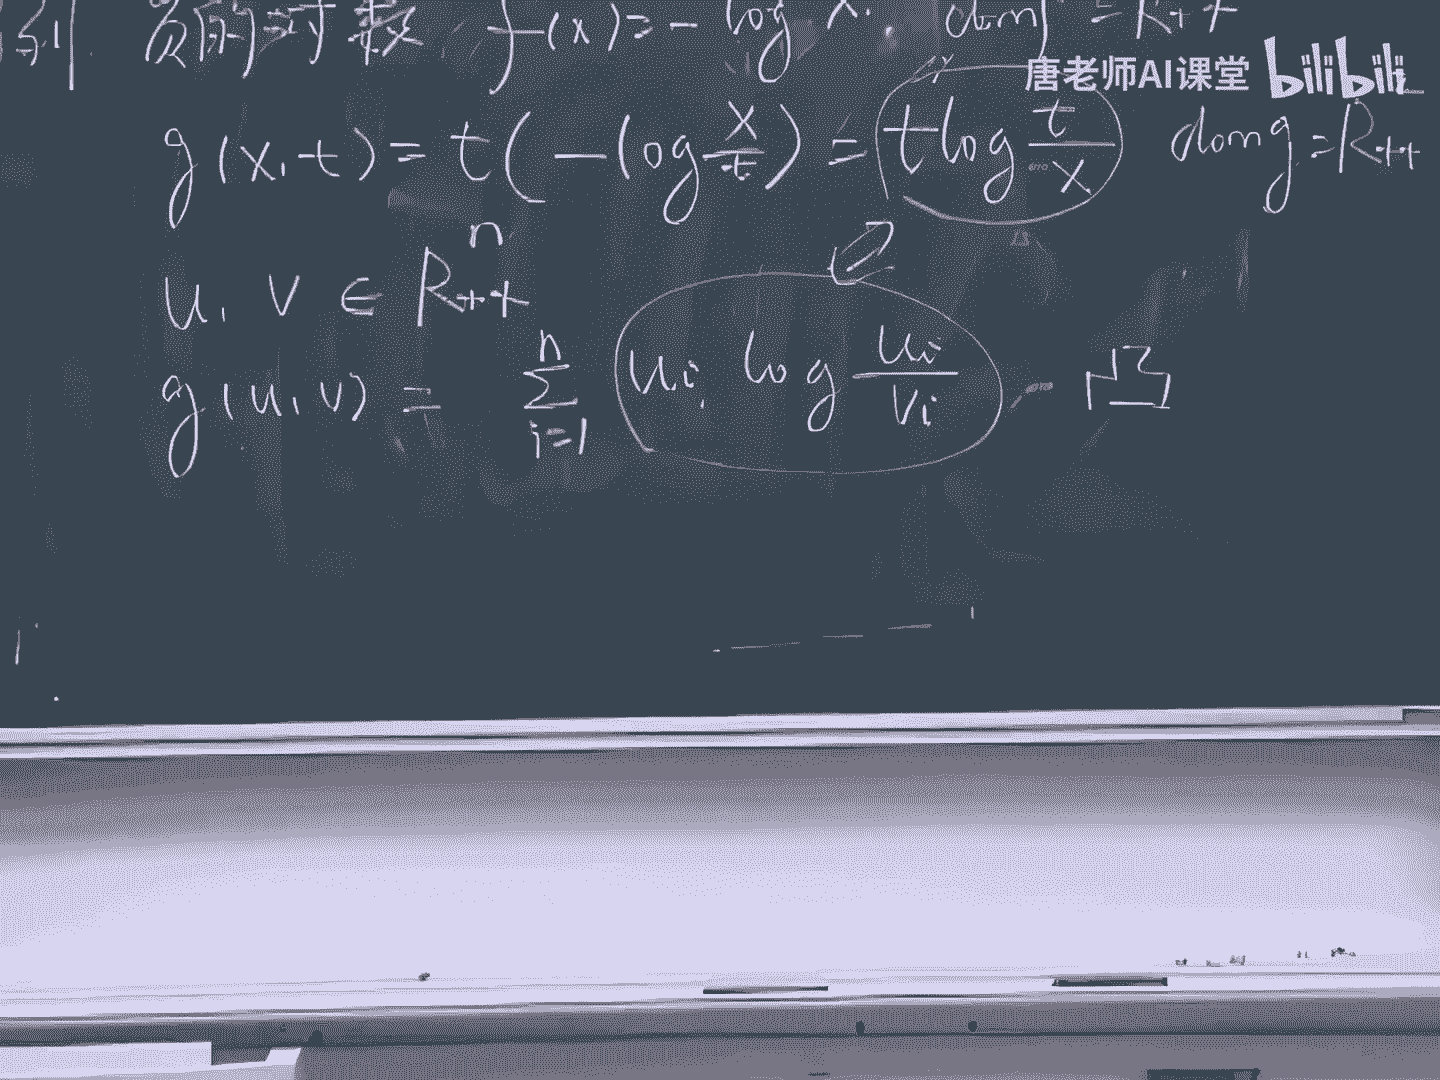 例. 负的对数 f(x) = - log x. dom f = R++
唐老师AI课堂 bilibili
g(x, t) = t(-log x/t) = t log t/x dom g = R++
u, v ∈ R^n++
g(u, v) = ∑_{i=1}^{n} ui log ui/vi 凸